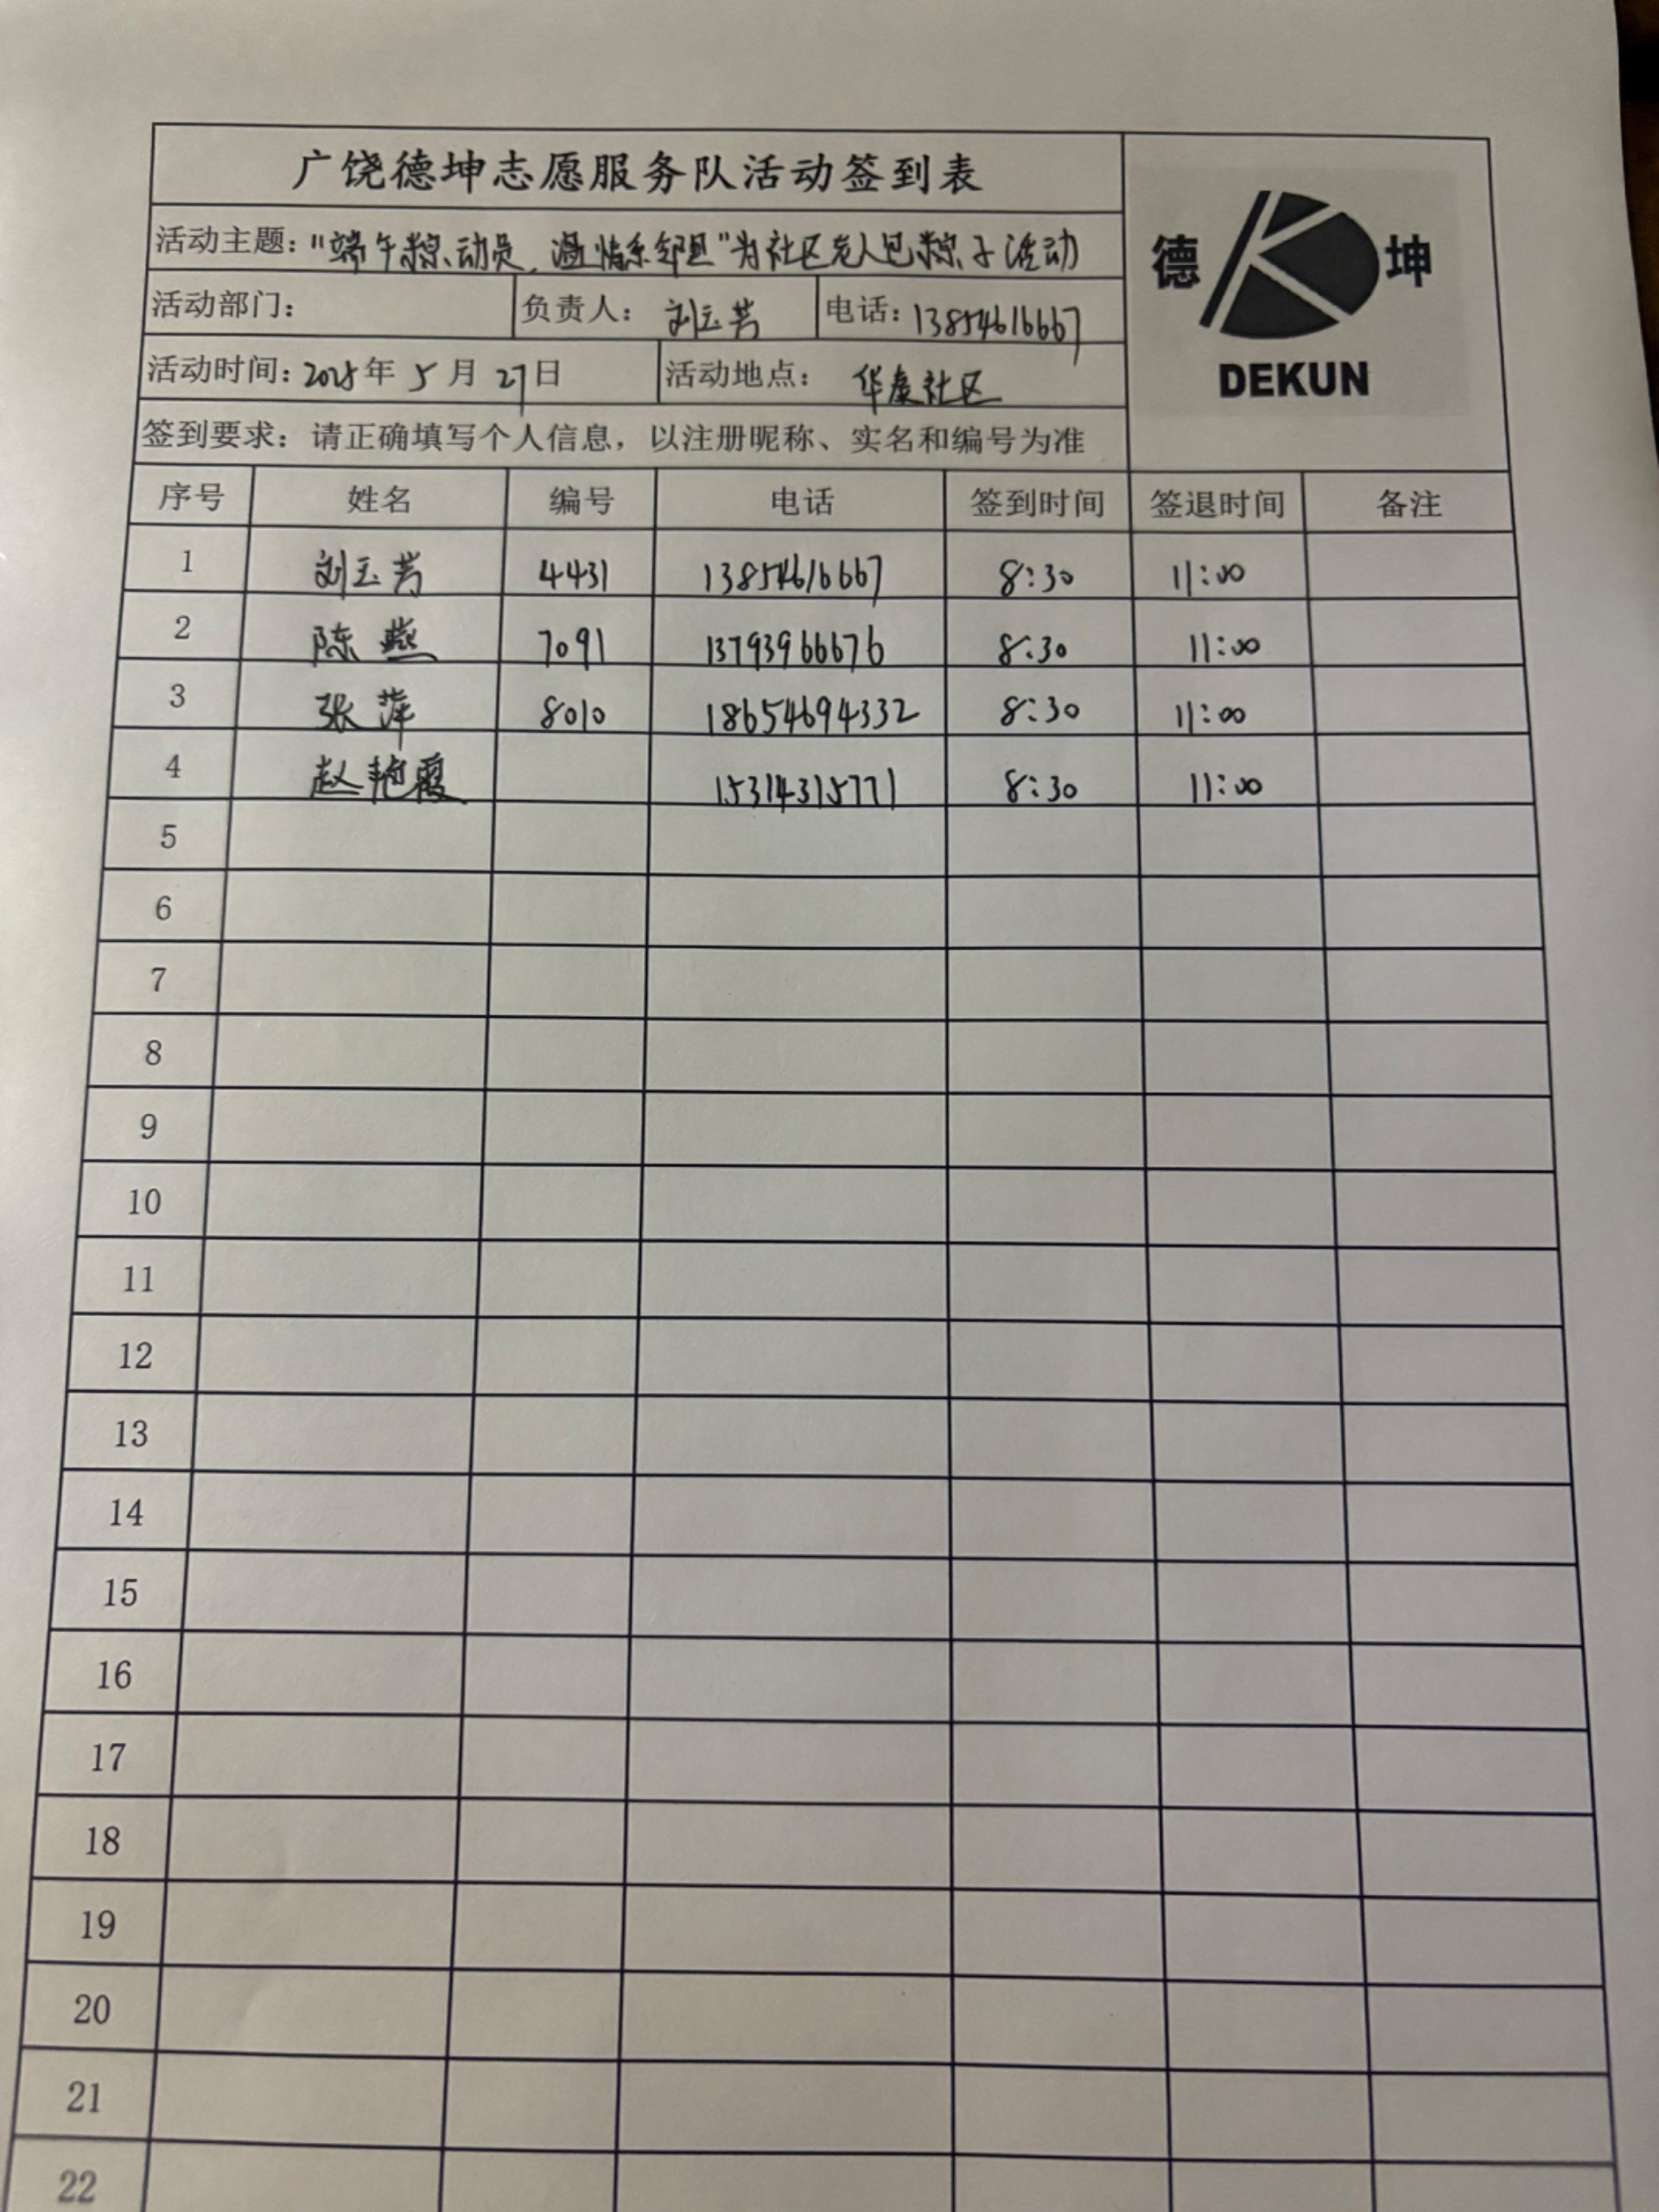 广饶德坤志愿服务队活动签到表
活动主题："端午粽动员,温情系邻里"为社区老人包粽子活动
活动部门： 负责人：刘玉芳 电话：13854616667
活动时间：2025年5月27日 活动地点：华康社区
签到要求：请正确填写个人信息，以注册昵称、实名和编号为准
德 坤
DEKUN
序号 姓名 编号 电话 签到时间 签退时间 备注
1 刘玉芳 4431 13854616667 8:30 11:00
2 陈燕 7091 13793966676 8:30 11:00
3 张萍 8010 18654694332 8:30 11:00
4 赵艳霞 15314315771 8:30 11:00
5
6
7
8
9
10
11
12
13
14
15
16
17
18
19
20
21
22